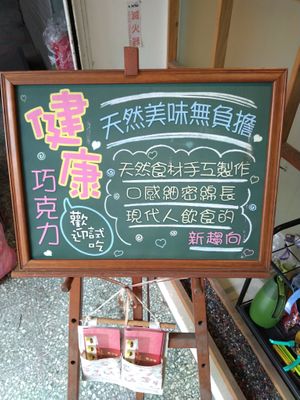 滅火器
健康
巧克力
歡迎試吃
天然美味無負擔
天然食材手工製作
口感細密綿長
現代人飲食的
新趨向